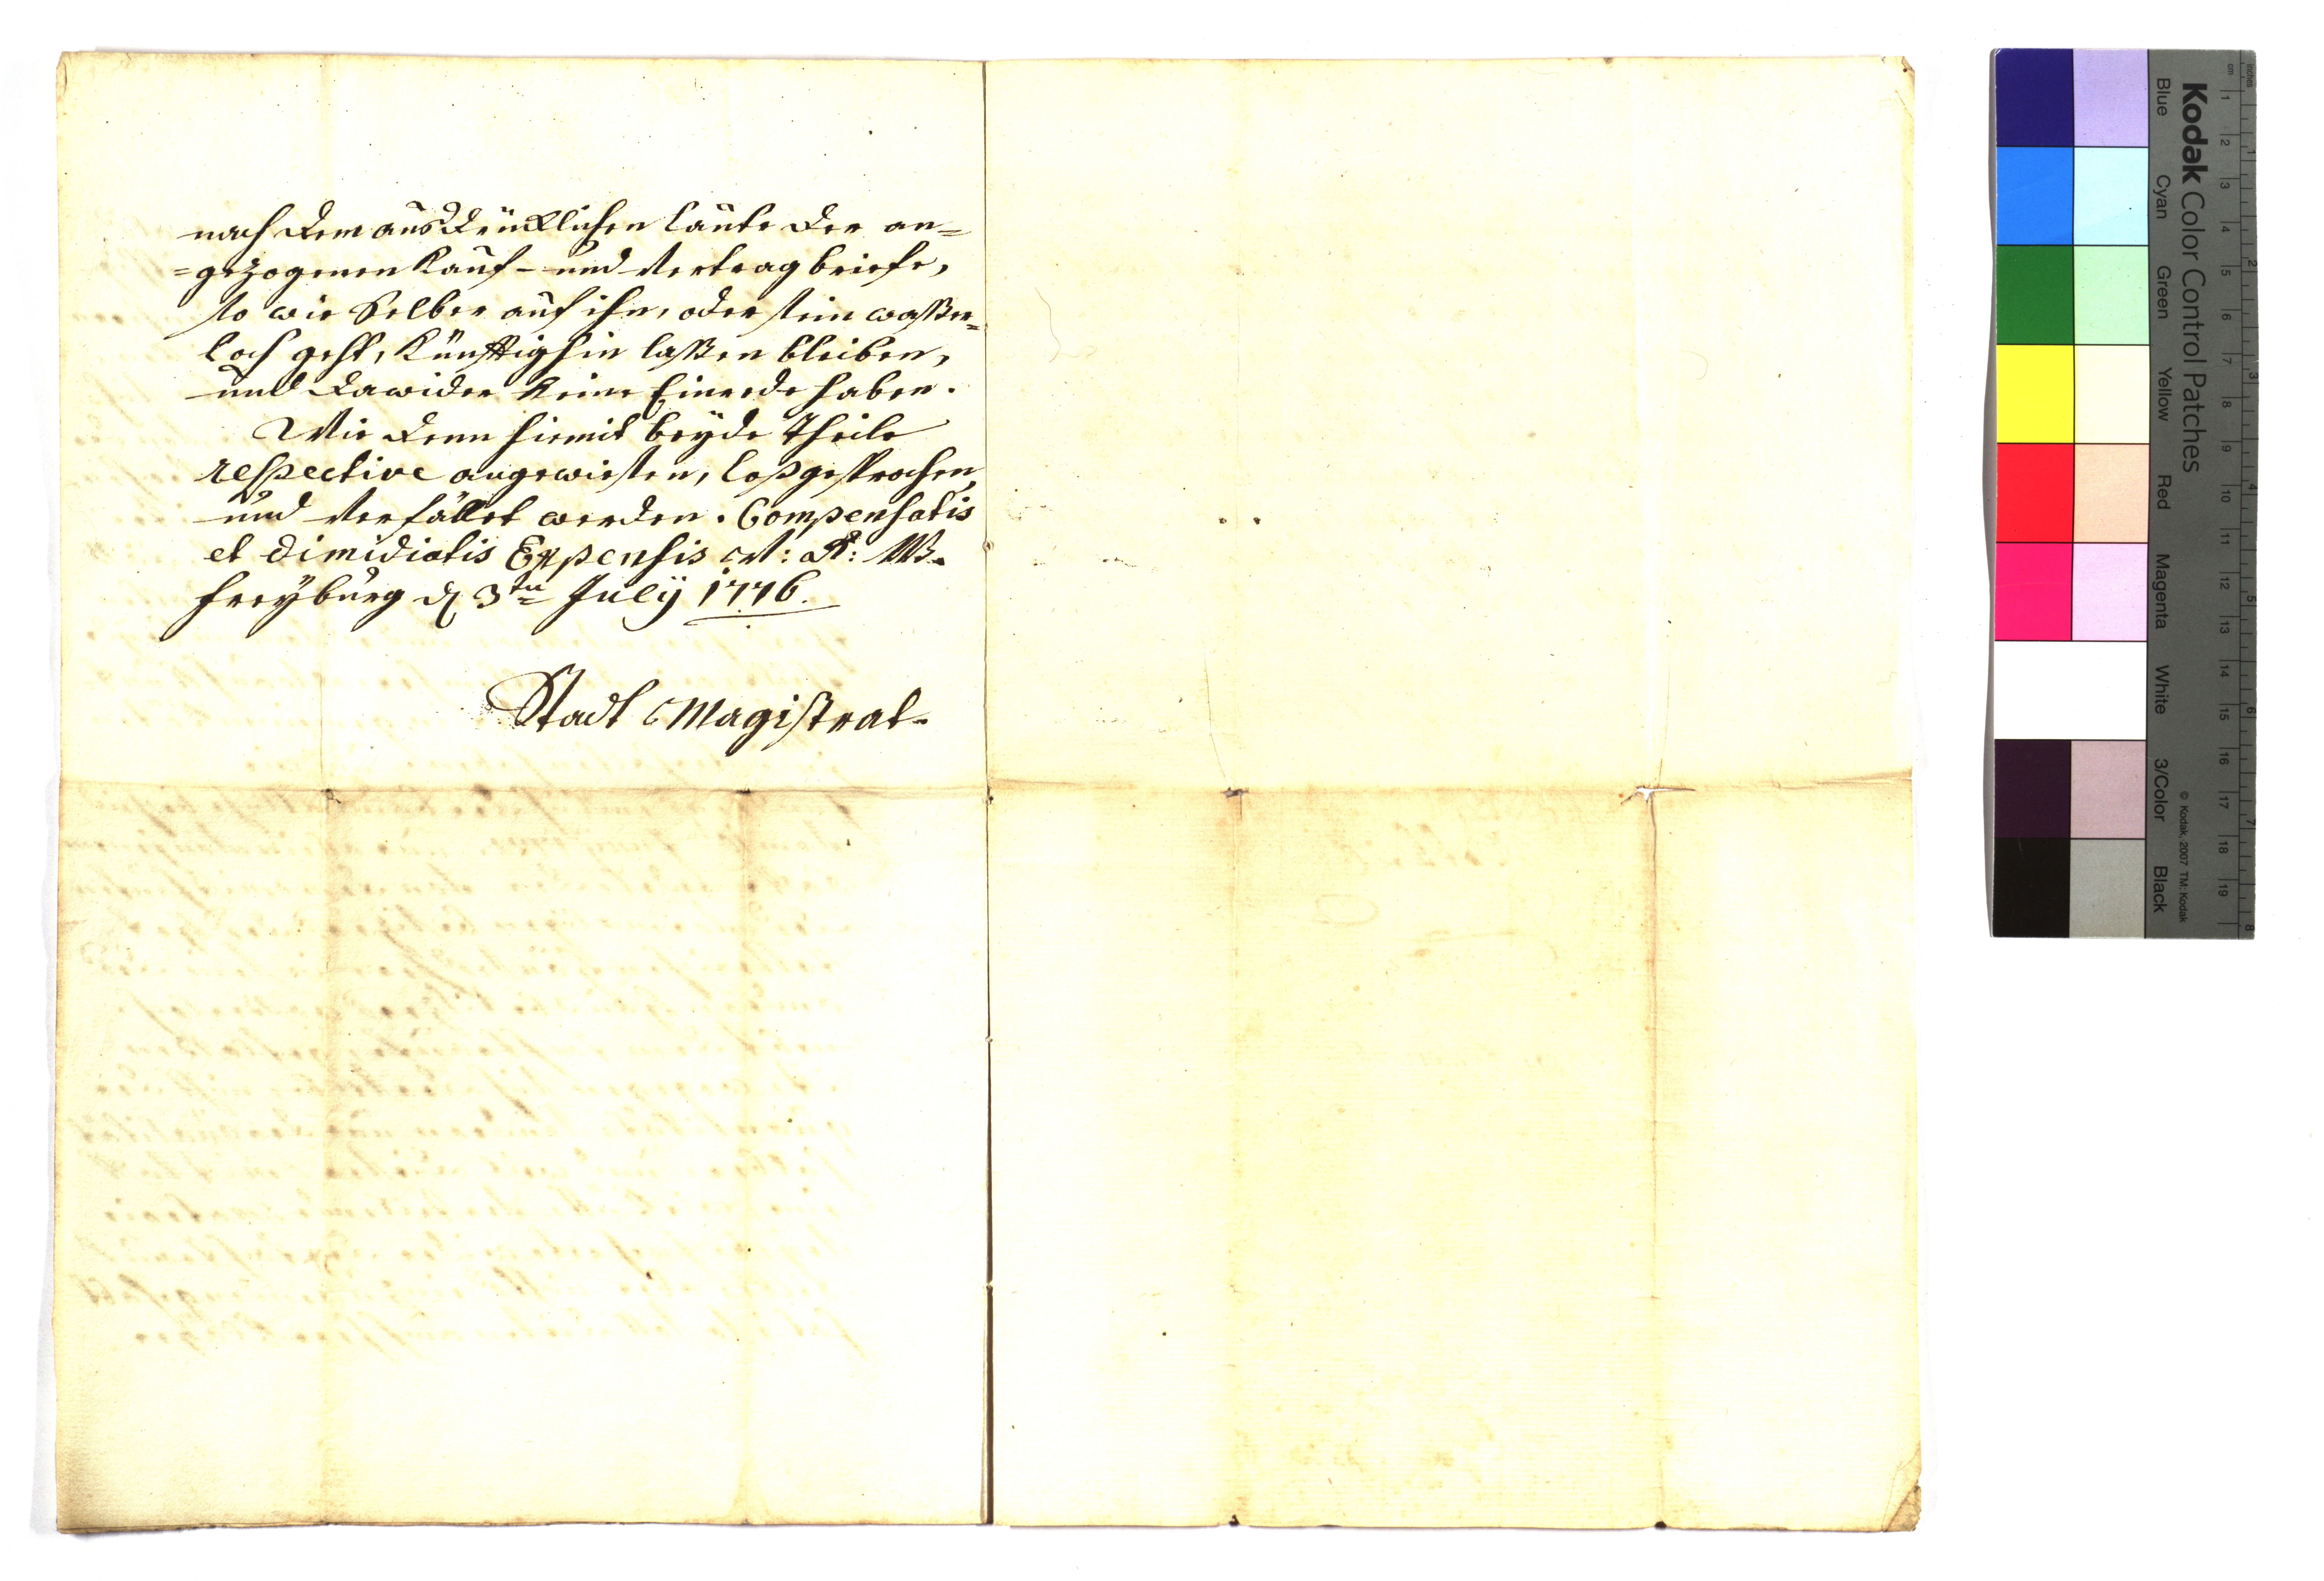 nach dem ausdrücklichen laute der an=
=gezogenen Kauf- und Vertragbriefe,
so wie Selber auf ihn, oder sein waßer=
loch geht, künfftighin laßen bleiben,
und dawider keine Einrede haben.
Wie denn hiemit beyde Theile
respective angewiesen, loßgesprochen,
und Verfället werden. Compensatis
et dimidiatis Expensis V: R: W.
Freyburg d 3ten July 1776.
Stadt Magistrat.
Kodak Color Control Patches
Blue
Cyan
Green
Yellow
Red
Magenta
White
3/Color
Black
© Kodak, 2007 TM: Kodak
inches
cm
1 2 3 4 5 6 7 8 9 10 11 12 13 14 15 16 17 18 19
1 2 3 4 5 6 7 8